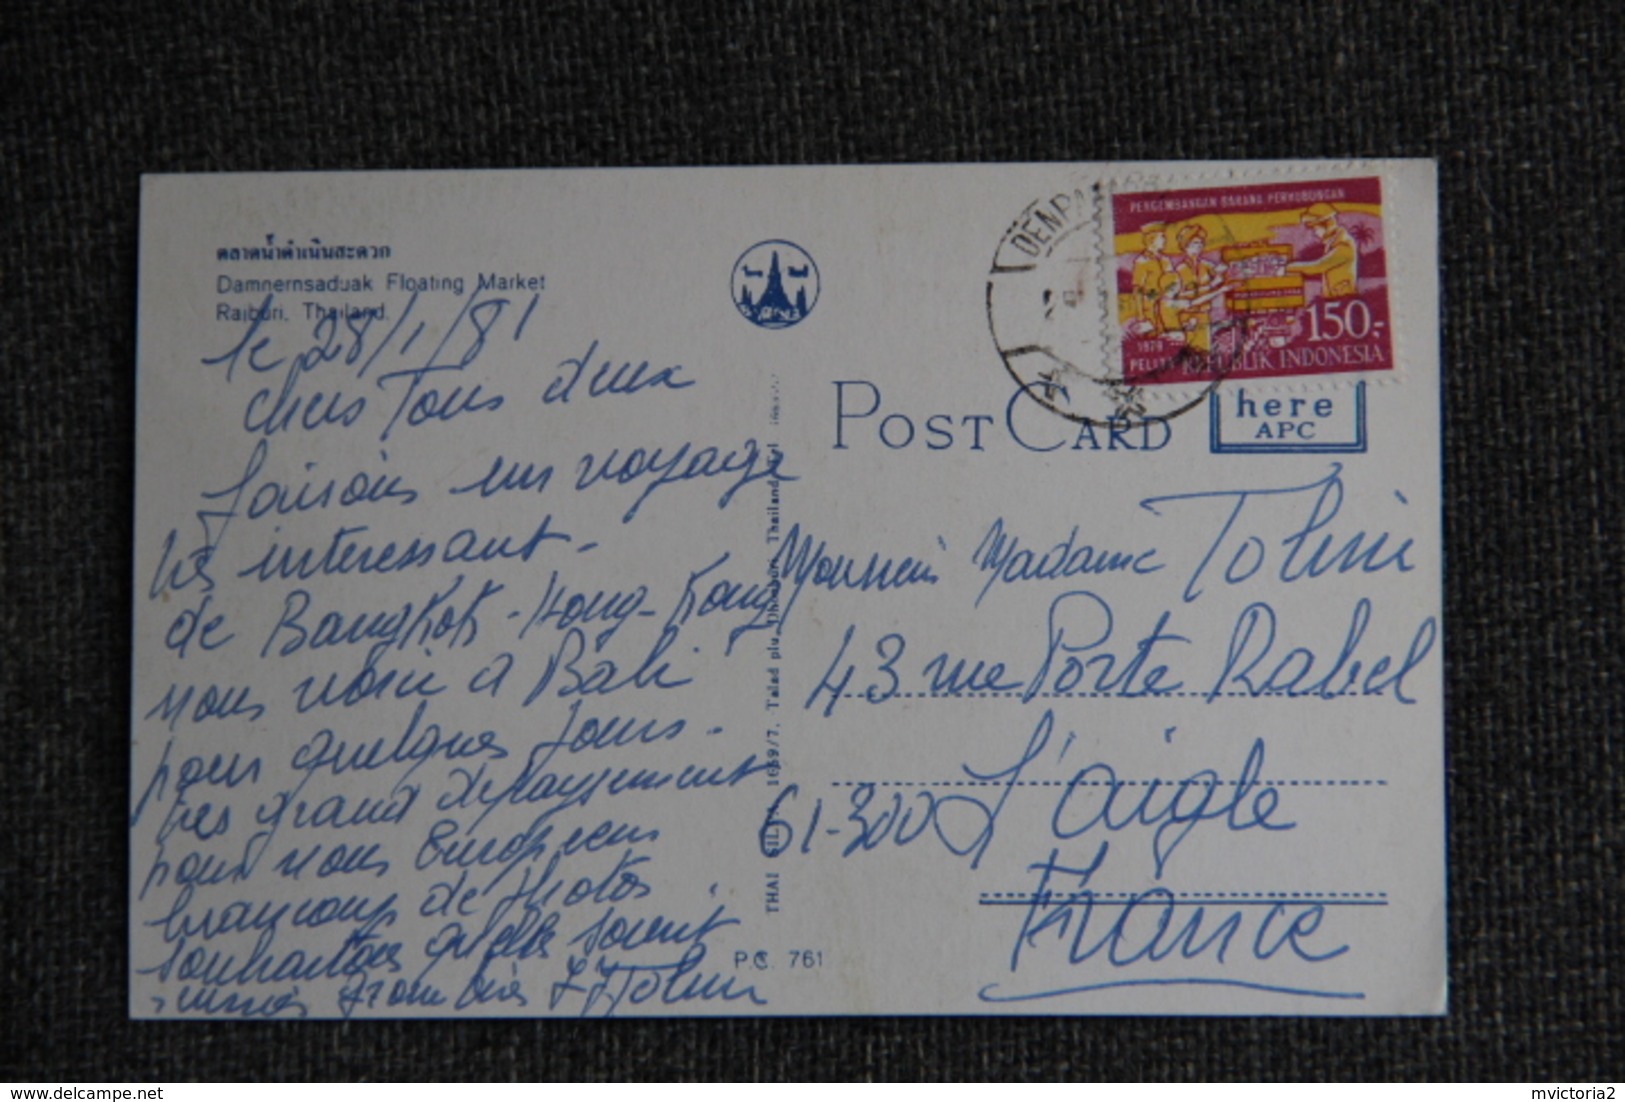 ตลาดน้ำดำเนินสะดวก
Damnernsaduak Floating Market
Rajburi, Thailand.
le 28/1/81
Chers Tous deux
faisons un voyage
très interessant -
de Bangkok - Hong-Kong
nous voici à Bali
pour quelques jours -
très grand depaysement
pour nous Européens
beaucoup de photos
souhaitons qu'elles soient
Tolini
THAI 1659/7, Talad plu, Dhonburi, Thailand,
P.C. 761
DENPASAR
PENGEMBANGAN BARANG PERKEBUNGAN
1979
PELITA REPUBLIK INDONESIA
150,-
POST CARD
here
APC
Monsieur Madame Tolini
43 rue Porte Rabel
61-300 L'aigle
France
mvictoria2